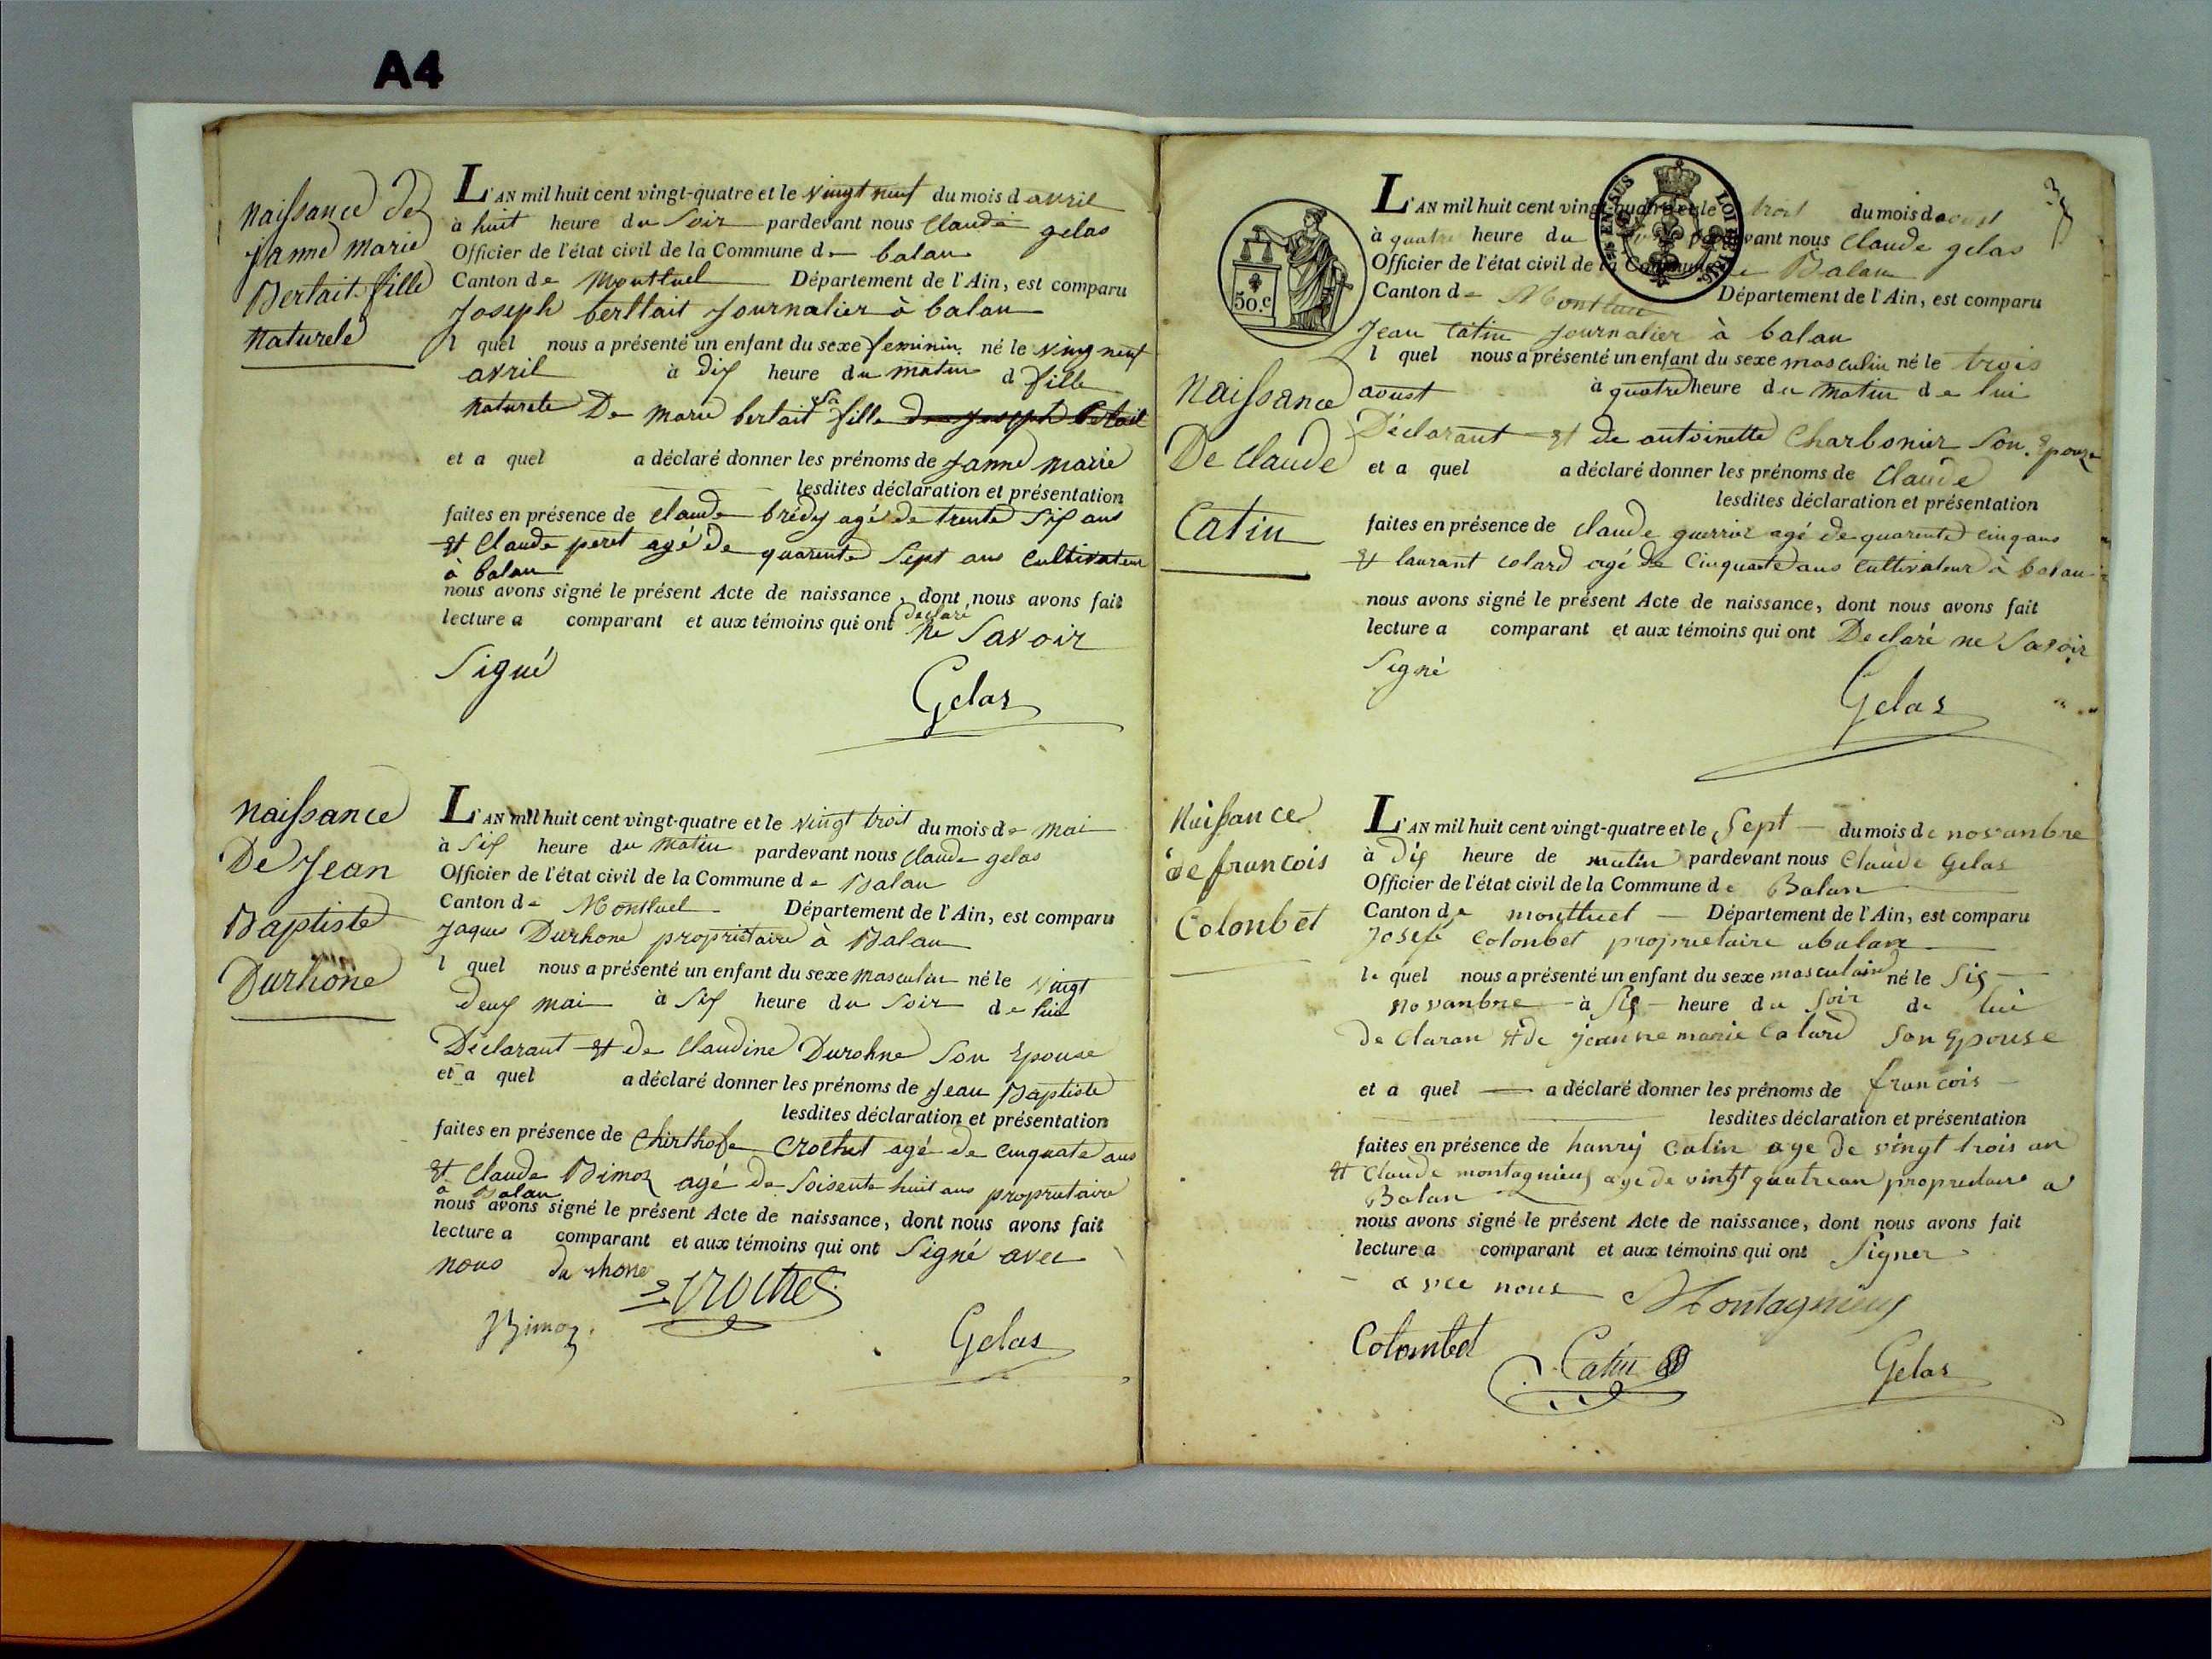 A4
naissance de
janne marie
Bertait fille
naturele
L'AN mil huit cent vingt-quatre et le vingt neuf du mois d avril
à huit heure du Soir pardevant nous Claude gelas
Officier de l'état civil de la Commune de balan
Canton de Montluel Département de l'Ain, est comparu
Joseph berttait Journalier à balan
l quel nous a présenté un enfant du sexe feminin né le ving neuf
avril à dix heure du matin d fille
naturele De marie bertait sa fille de joseph bertait
et a quel a déclaré donner les prénoms de janne marie
lesdites déclaration et présentation
faites en présence de claude brédy agé de trente six ans
et Claude peret agé de quarente Sept ans Cultivateur
à balan
nous avons signé le présent Acte de naissance, dont nous avons fait
lecture a comparant et aux témoins qui ont declaré ne Savoir
Signé
Gelas
naissance
De Jean
Baptiste
Durhone
L'AN mil huit cent vingt-quatre et le vingt troit du mois de mai
à six heure du matin pardevant nous claude gelas
Officier de l'état civil de la Commune de Balan
Canton de Montluel Département de l'Ain, est comparu
Jaques Durhone proprietaire à Balan
l quel nous a présenté un enfant du sexe masculin né le vingt
deux mai à six heure du Soir de lui
Déclarant et de Claudine Durohne Son Epouse
et a quel a déclaré donner les prénoms de Jean Baptiste
lesdites déclaration et présentation
faites en présence de Chirthofe Crochet agé de cinquate ans
et Claude Bimoz agé de Soisente huit ans proprietaire
à Balan
nous avons signé le présent Acte de naissance, dont nous avons fait
lecture a comparant et aux témoins qui ont Signé avec
nous du rhone
Crochet
Bimoz
Gelas
3
50.c
LOI
L'AN mil huit cent vingt-quatre et le troit du mois d aoust
à quatre heure du pardevant nous Claude gelas
Officier de l'état civil de la Commune de Balan
Canton de Montluel Département de l'Ain, est comparu
Jean Catin Journalier à balan
l quel nous a présenté un enfant du sexe masculin né le trois
aoust à quatre heure du matin de lui
Naissance
De Claude
Catin
Déclarant et de antoinette Charbonier Son Epouze
et a quel a déclaré donner les prénoms de Claude
lesdites déclaration et présentation
faites en présence de claude guerrier agé de quarente cinq ans
et laurant colard agé de Cinquate ans Cultivateur à balan
nous avons signé le présent Acte de naissance, dont nous avons fait
lecture a comparant et aux témoins qui ont Declaré ne Savoir
Signé
Gelas
Naissance
de francois
Colonbet
L'AN mil huit cent vingt-quatre et le Sept du mois de novanbre
à dix heure de matin pardevant nous Claude Gelas
Officier de l'état civil de la Commune de Balan
Canton de montluel Département de l'Ain, est comparu
Josefe Colonbet proprietaire abalan
le quel nous a présenté un enfant du sexe masculain né le Sis
novanbre à Sis heure du Soir de lui
de claran et de jeanne marie Calard Son Epouse
et a quel a déclaré donner les prénoms de francois
lesdites déclaration et présentation
faites en présence de hanry Catin age de vingt trois an
et Claude montagnieux age de vingt quatre an propredaire a
Balan
nous avons signé le présent Acte de naissance, dont nous avons fait
lecture a comparant et aux témoins qui ont Signer
avec nous Montagnieux
Colombet
Catin
Gelas